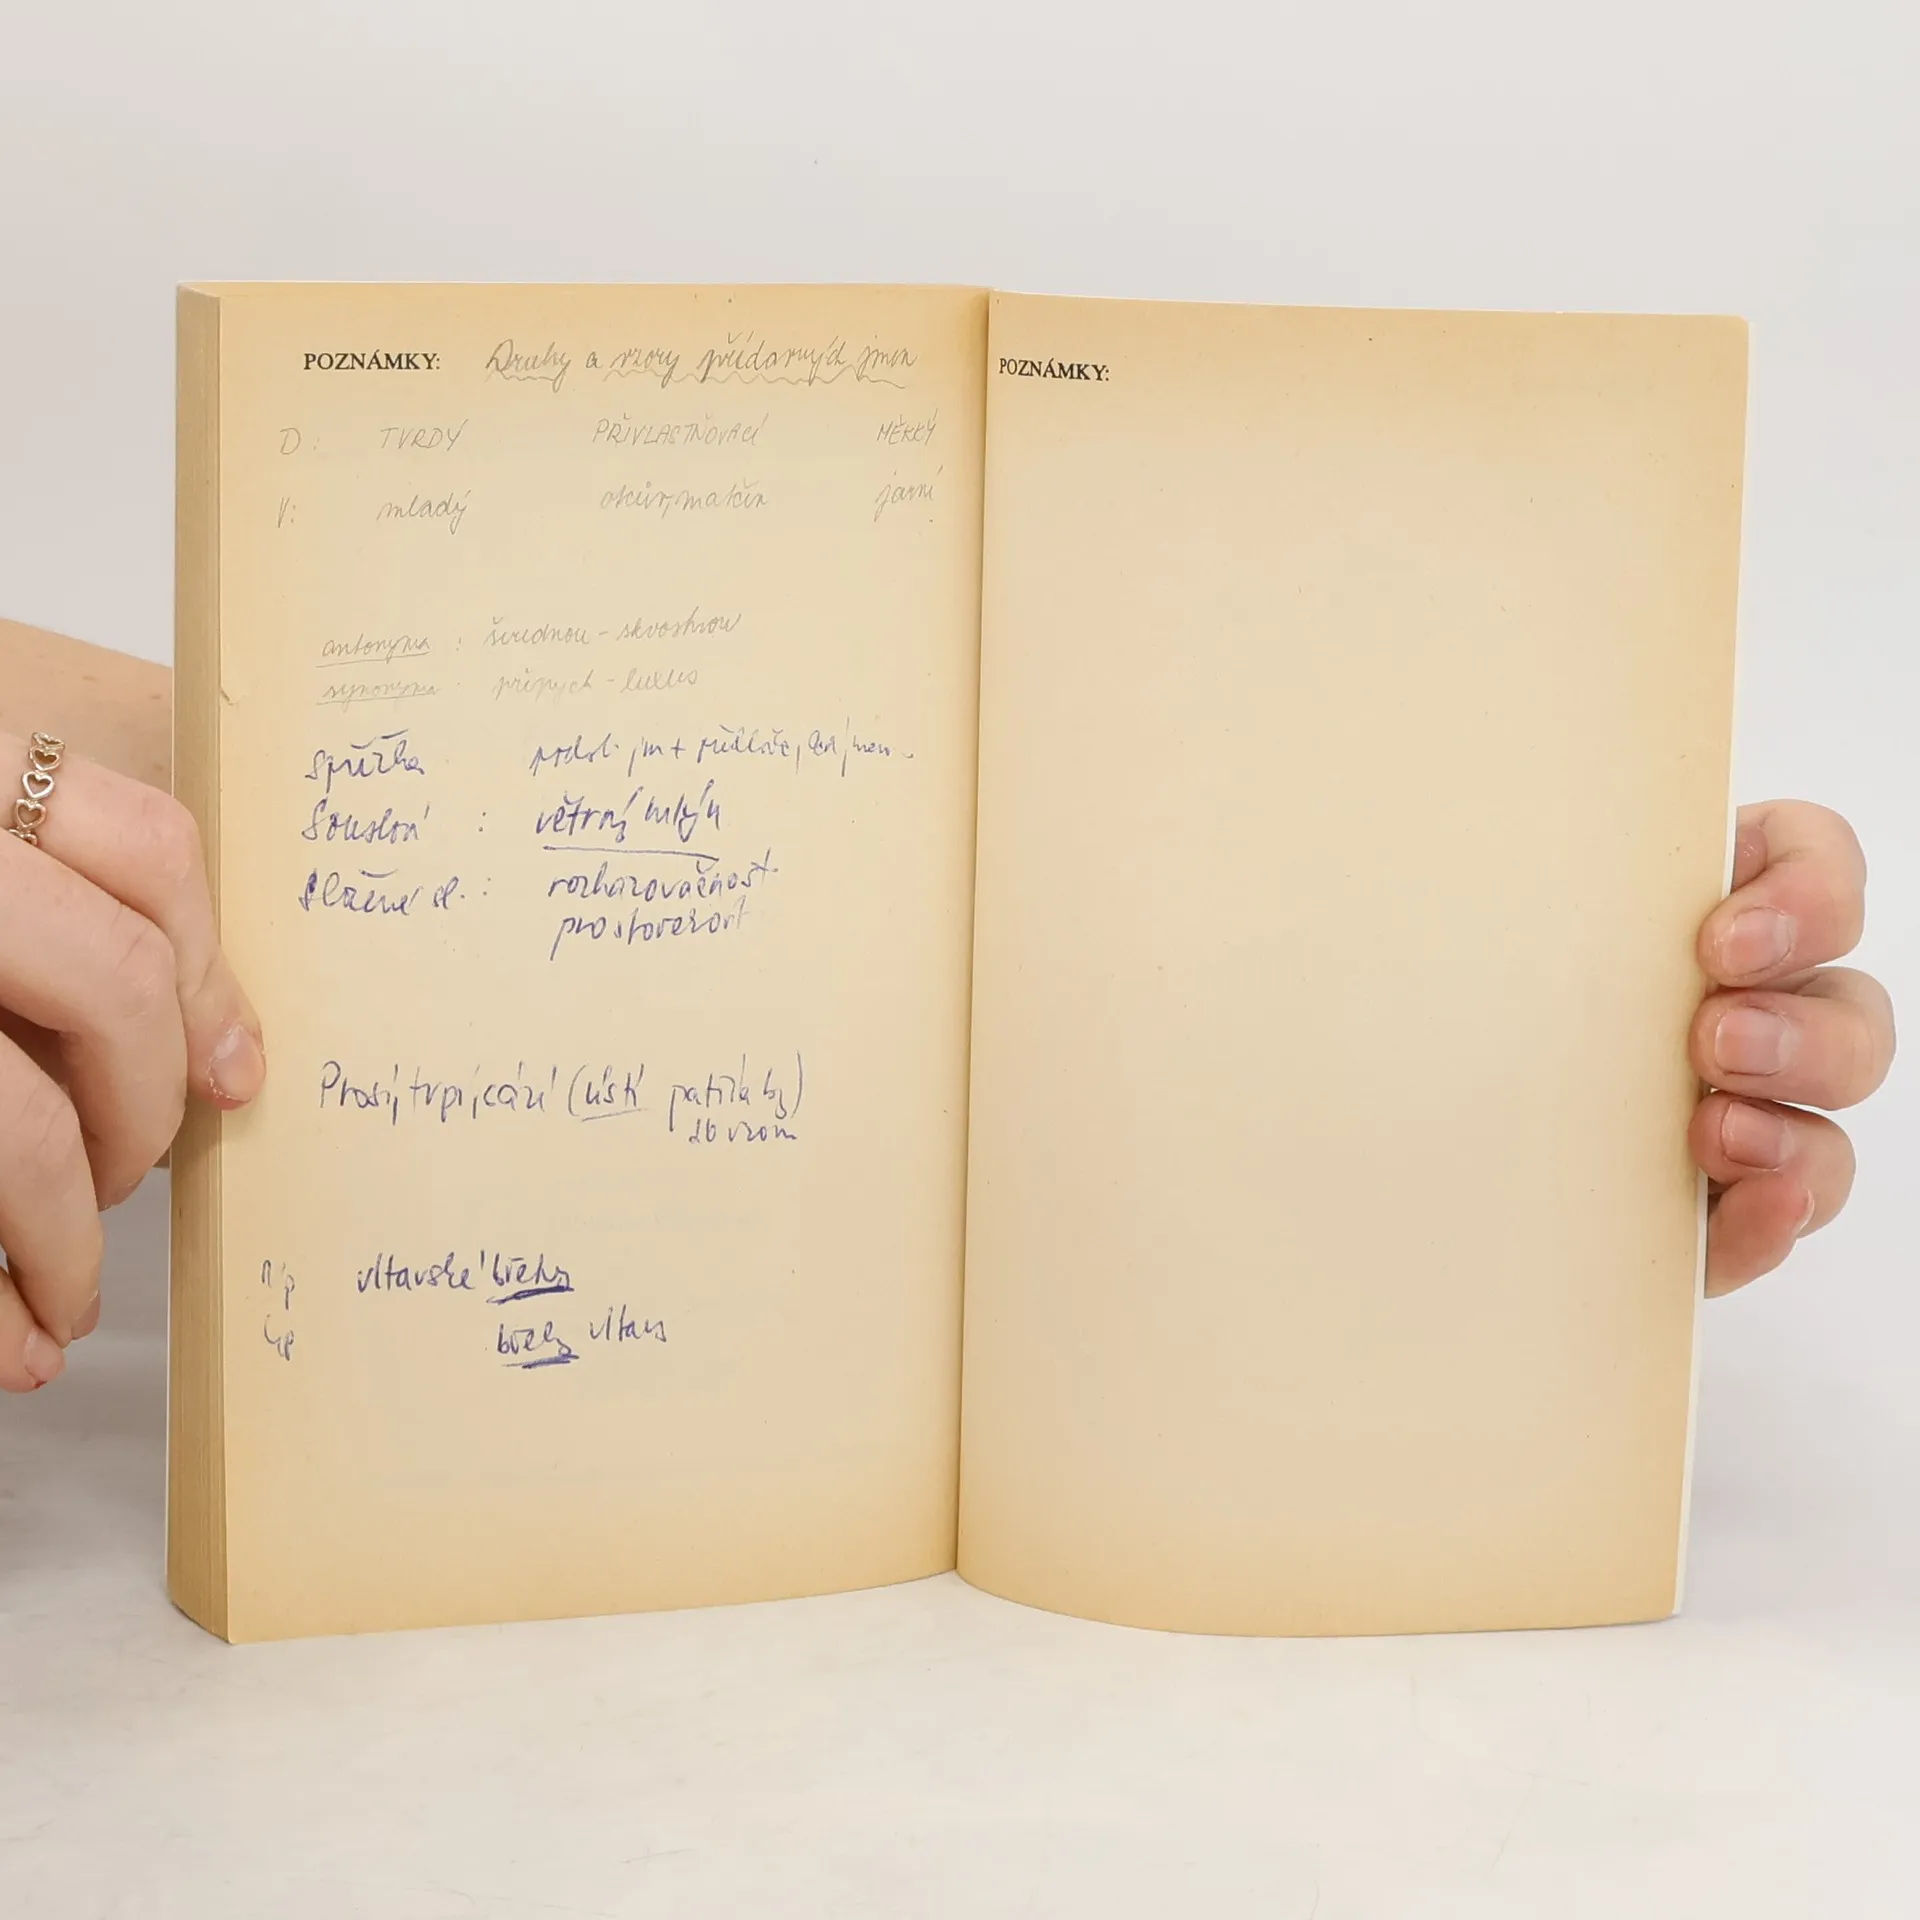 POZNÁMKY: Druhy a vzory přídavných jmen
D: TVRDÝ PŘIVLASTŇOVACÍ MĚKKÝ
V: mladý otcův, matčin jarní
antonyma : šerednou - skvostnou
synonyma : přepych - luxus
Spřežka podst. jm + předlož,
Sousloví : větrný mlýn
Složené sl. : rozhazovačnost
prostovezort
Prosí, trpí, sází (ústí patřila by)
vzom
vltavské břehy
břehy vltavy
POZNÁMKY: